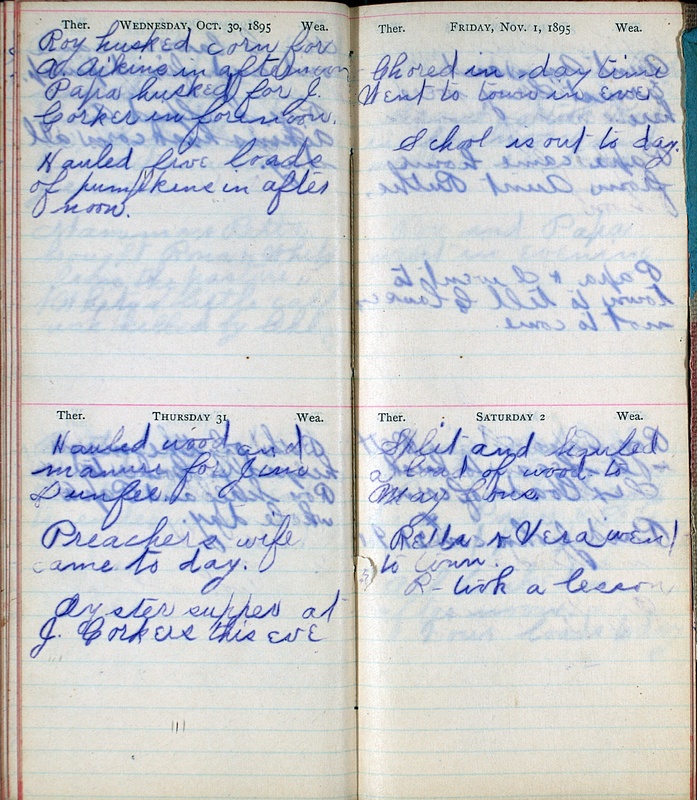 Ther. WEDNESDAY, OCT. 30, 1895 Wea.
Roy husked corn for
A. Aikins in afternoon
Papa husked for J.
Corker in forenoon.
Hauled five loads
of pumpkins in after
noon.
Ther. THURSDAY 31 Wea.
Hauled wood and
manure for
Preacher's wife
came to day.
Oyster supper at
J. Corkers this eve
Ther. FRIDAY, NOV. 1, 1895 Wea.
Chored in day time
Went to town in eve
School is out to day.
Ther. SATURDAY 2 Wea.
Split and hauled
a load of wood to
May
Retta & Vera went
to town.
R- took a lesson